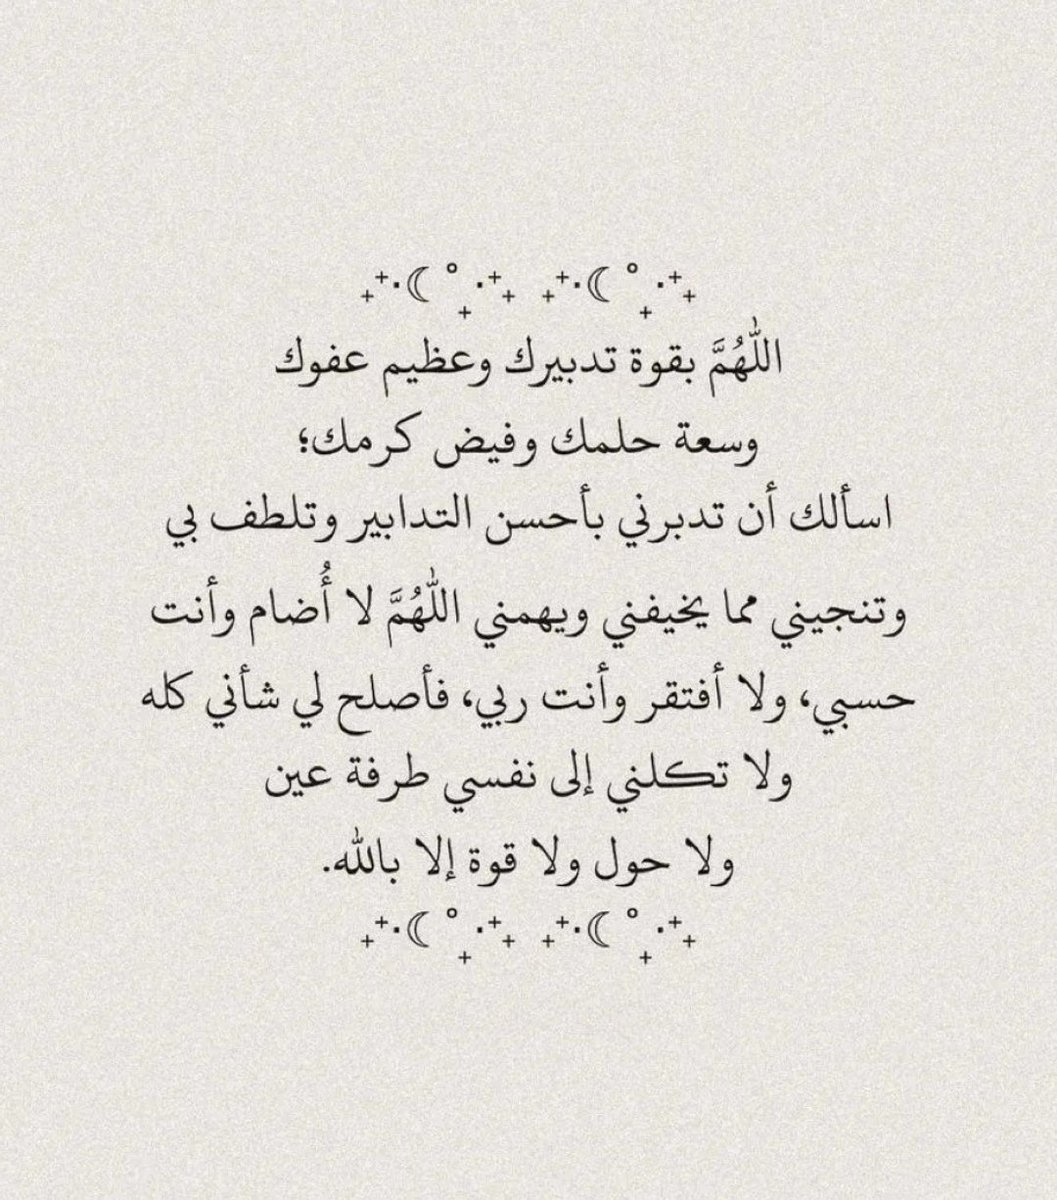 ₊⁺·☾°₊·⁺₊ ₊⁺·☾°₊·⁺₊
اللّٰهُمَّ بقوة تدبيرك وعظيم عفوك
وسعة حلمك وفيض كرمك؛
اسألك أن تدبرني بأحسن التدابير وتلطف بي
وتنجيني مما يخيفني ويهمني اللّٰهُمَّ لا أُضام وأنت
حسبي، ولا أفتقر وأنت ربي، فأصلح لي شأني كله
ولا تكلني إلى نفسي طرفة عين
ولا حول ولا قوة إلا بالله.
₊⁺·☾°₊·⁺₊ ₊⁺·☾°₊·⁺₊